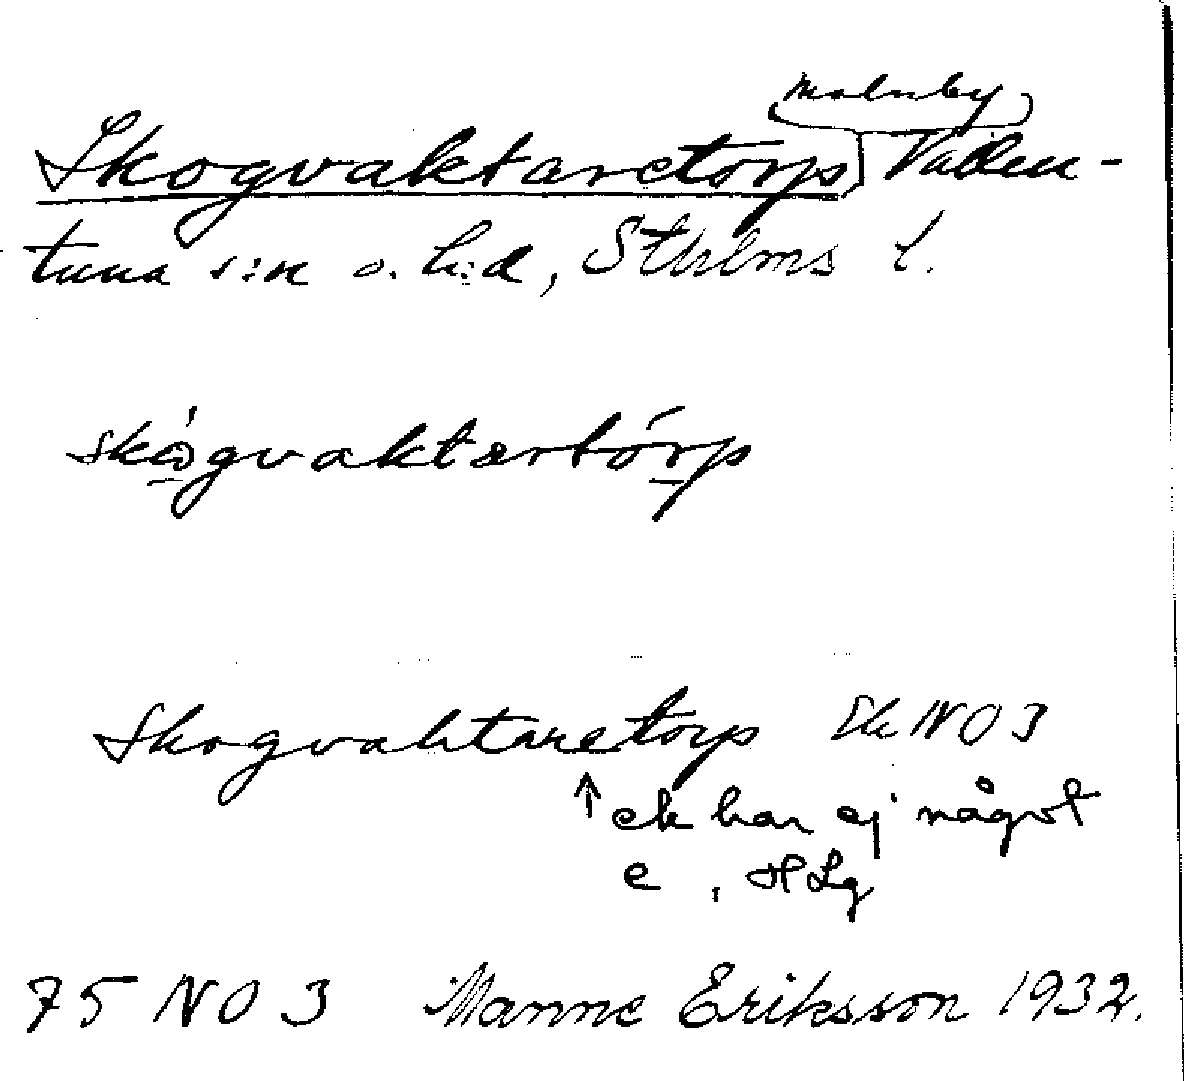 Malmby
Skogvaktaretorp) Vallen-
tuna s:n o. h:d, Sthlms l.
skógvaktərtórp
Skogvaktaretorp Ek NO 3
↑ ek har ej något
e, HLg
75 NO 3 Manne Eriksson 1932.